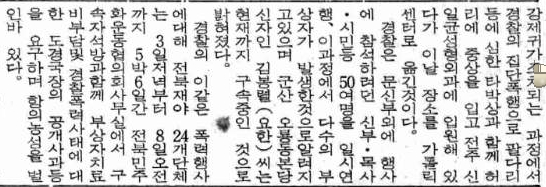 강제귀가조치되는 과정에서
경찰의 집단폭행으로 팔다리
등에 심한 타박상과 함께 허
리에 중상을 입고 전주 신
일균성형외과에 입원해 있
다가 이날 장소를 가톨릭
센터로 옮긴것이다.
경찰은 문신부외에 행사
에 참석하려던 신부·목사
·시민등 50여명을 일시연
행, 이과정에서 다수의 부
상자가 발생한것으로알려지
고있으며 군산 오룡동본당
신자인 김봉별(요한)씨는
현재까지 구속중인 것으로
밝혀졌다.
경찰의 이같은 폭력행사
에대해 전북재야 24개단체
는 3일저녁부터 8일오전
까지 5박6일간 전북민주
화운동협의회사무실에서 구
속자석방과함께 부상자치료
비부담및 경찰폭력사태에대
한 도경국장의 공개사과등
을 요구하며 항의농성을 벌
인바 있다.